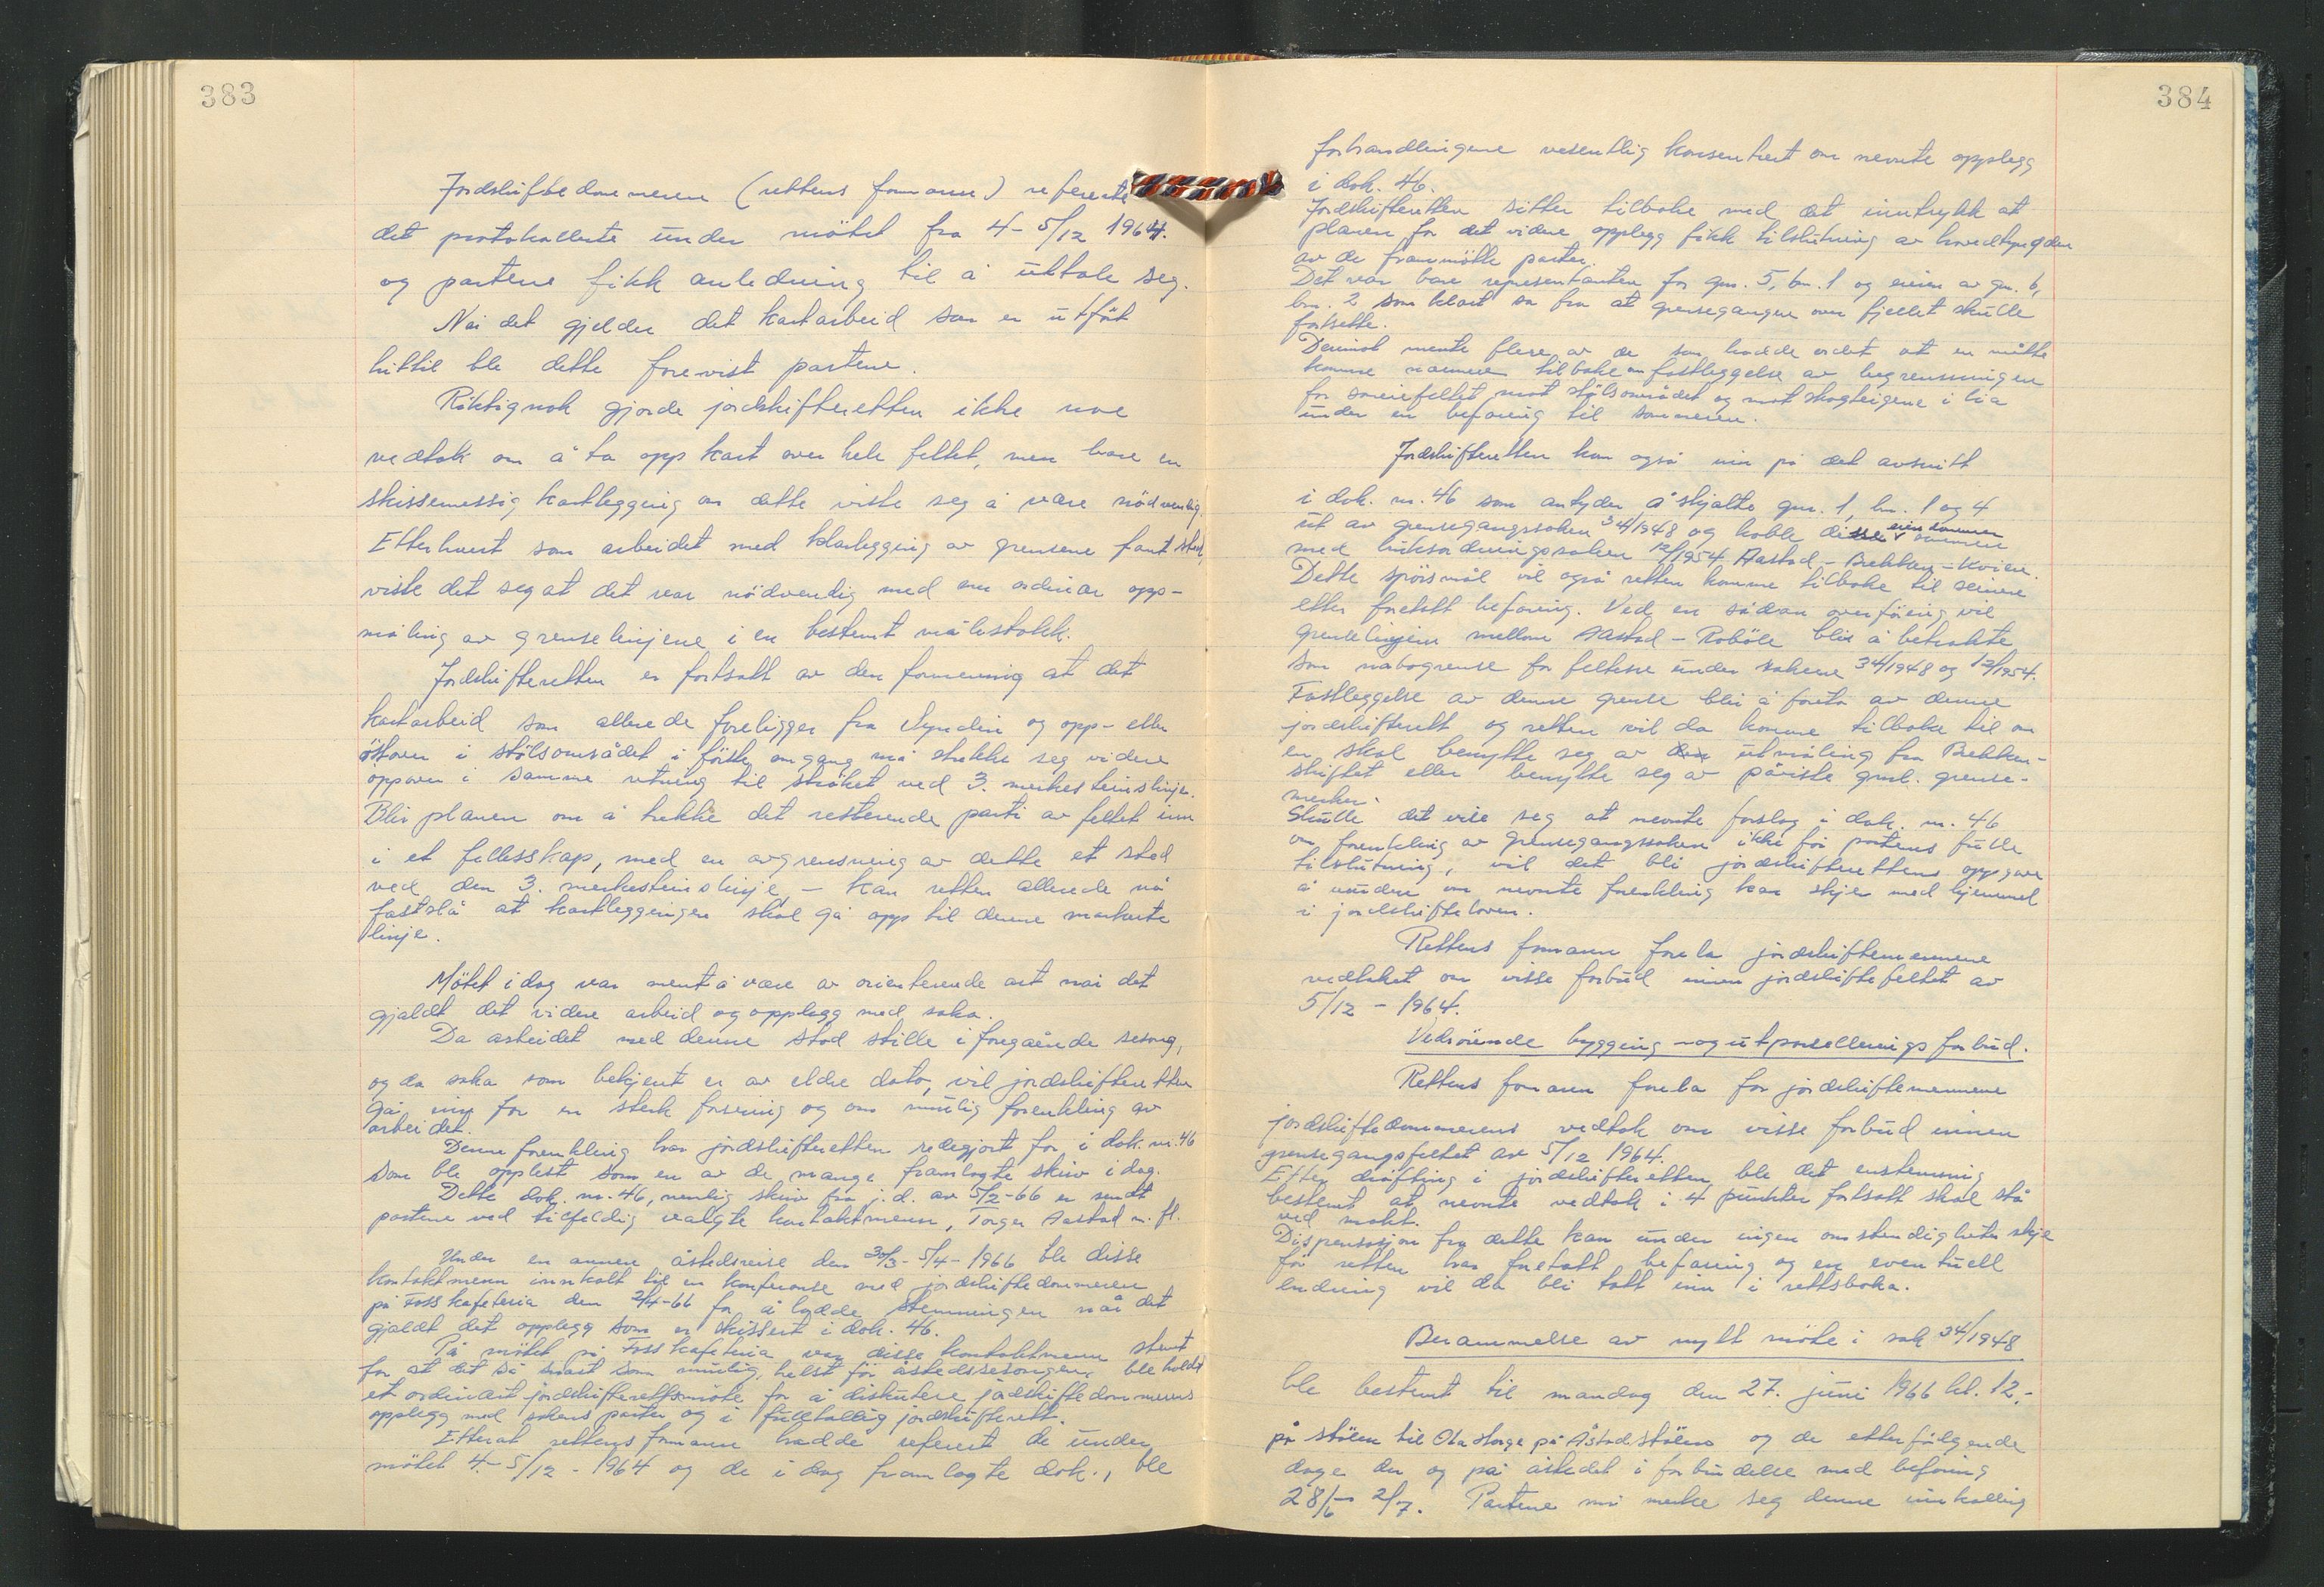 383
Jordskiftedommeren (rettens formann) refererte
det protokollerte under mötet fra 4-5/12 1964.
og partene fikk anledning til å uttale seg.
Når det gjelder det kartarbeid som er utfört
hittil ble dette forevist partene.
Riktignok gjorde jordskifteretten ikke noe
vedtak om å ta opp kart over hele feltet, men bare en
skissemessig kartlegging om dette viste seg å være nödvendig.
Etterhvert som arbeidet med klarlegging av grensene fant sted,
viste det seg at det var nödvendig med en ordinær opp-
måling av grenselinjene i en bestemt målestokk.
Jordskifteretten er fortsatt av den formening at det
kartarbeid som allerede foreligger fra Syndin og opp- eller
östover i stölsområdet i förste omgang må strekke seg videre
oppover i samme retning til ströket ved 3. merkesteinslinje.
Blir planen om å trekke det resterende parti av feltet inn
i et fellesskap, med en avgrensning av dette et sted
ved den 3. merkesteinslinje, - kan retten allerede nå
fastslå at kartleggingen skal gå opp til denne markerte
linje.
Mötet i dag var ment å være av orienterende art når det
gjaldt det videre arbeid og opplegg med saka.
Da arbeidet med denne stod stille i foregående sesong,
og da saka som bekjent er av eldre dato, vil jordskifteretten
gå inn for en sterk forsering og om mulig forenkling av
arbeidet.
Denne forenkling har jordskifteretten redegjort for i dok. nr. 46
som ble opplest som en av de mange framlagte skriv i dag.
Dette dok. nr. 46, nemlig skriv fra j.d. av 5/2-66 er sendt
partene ved tilfeldig valgte kontaktmenn, Torger Aastad m. fl.
Under en annen åstedsreise den 30/3 - 5/4 - 1966 ble disse
kontaktmenn innkalt til en konferanse med jordskiftedommeren
på Foss kafeteria den 2/4-66 for å lodde stemningen når det
gjaldt det opplegg som er skissert i dok. 46.
På mötet på Foss kafeteria var disse kontaktmenn stemt
for at det så snart som mulig, helst för åstedssesongen, ble holdt
et ordinært jordskifterettsmöte for å diskutere jordskiftedommerens
opplegg med sakens parter og i fulltallig jordskifterett.
Etterat rettens formann hadde referert de under
mötet 4-5/12 - 1964 og de i dag framlagte dok., ble
384
forhandlingene vesentlig konsentrert om nevnte opplegg
i dok. 46.
Jordskifteretten sitter tilbake med det inntrykk at
planen for det videre opplegg fikk tilslutning av hovedtyngden
av de frammötte parter.
Det var bare representanten for gnr. 5, bnr. 1 og eieren av gnr. 6,
bnr. 2 som klart sa fra at grensegangen over fjellet skulle
fortsette.
Derimot mente flere av de som hadde ordet at en måtte
komme nærmere tilbake om fastleggelse av begrensningen
for sameiefeltet mot stölsområdet og mot skogteigene i lia
under en befaring til sommeren.
Jordskifteretten kom også inn på det avsnitt
i dok. nr. 46 som antyder å skjalte gnr. 1, bnr. 1 og 4
ut av grensegangssaken 34/1948 og koble disse eiendommer sammen
med bruksordningssaken 12/1954 Aastad - Brekken - Kvien.
Dette spörsmål vil også retten komme tilbake til seinere
etter foretatt befaring. Ved en sådan overföring vil
grenselinjen mellom Aastad - Roböle bli å betrakte
som nabogrense for feltene under sakene 34/1948 og 12/1954.
Fastleggelse av denne grense blir å foreta av denne
jordskifterett og retten vil da komme tilbake til om
en skal benytte seg av utmåling fra Brekken-
skiftet eller benytte seg av påviste gml. grense-
merker.
Skulle det vise seg at nevnte forslag i dok. nr. 46
om forenkling av grensegangssaken ikke får partenes fulle
tilslutning, vil det bli jordskifterettens oppgave
å vurdere om nevnte forenkling kan skje med hjemmel
i jordskifteloven.
Rettens formann forela jordskiftemennene
vedtaket om visse forbud innen jordskiftefeltet av
5/12 - 1964.
Vedrörende bygging- og utparsellerings forbud.
Rettens formann forela for jordskiftemennene
jordskiftedommerens vedtak om visse forbud innen
grensegangsfeltet av 5/12 1964.
Etter dröfting i jordskifteretten ble det enstemmig
bestemt at nevnte vedtak i 4 punkter fortsatt skal stå
ved makt.
Dispensasjon fra dette kan under ingen omstendigheter skje
för retten har foretatt befaring og en eventuell
endring vil da bli tatt inn i rettsboka.
Berammelse av nytt möte i sak 34/1948
ble bestemt til mandag den 27. juni 1966 kl. 12.-
på stölen til Ola Horge på Åstadstölen og de etterfölgende
dager der og på åstedet i forbindelse med befaring
28/6 - 2/7. Partene må merke seg denne innkalling